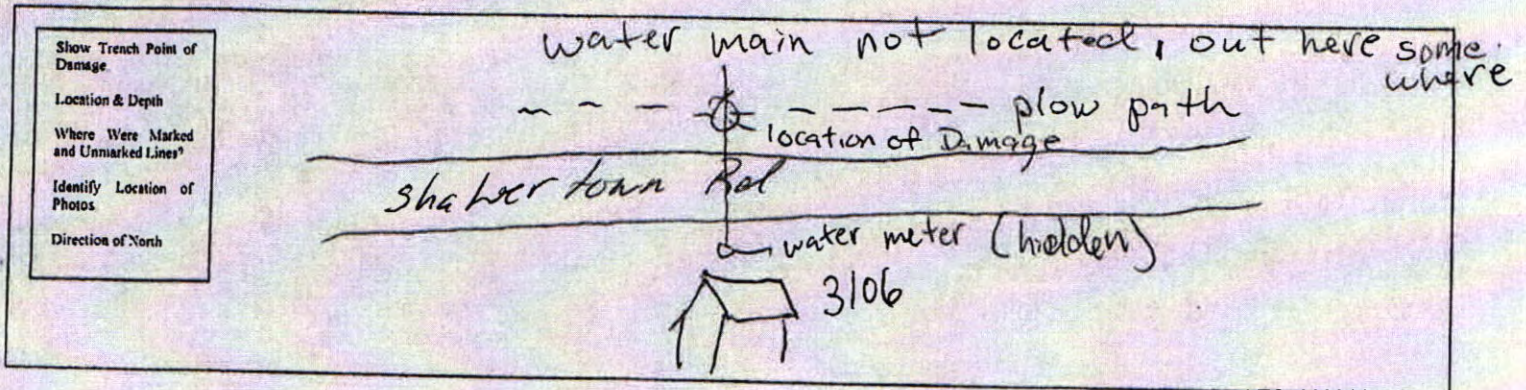 Show Trench Point of
Damage
Location & Depth
Where Were Marked
and Unmarked Lines?
Identify Location of
Photos
Direction of North
water main not located, out here some
where
plow path
location of Damage
Shaver town Rd
water meter (hidden)
3106